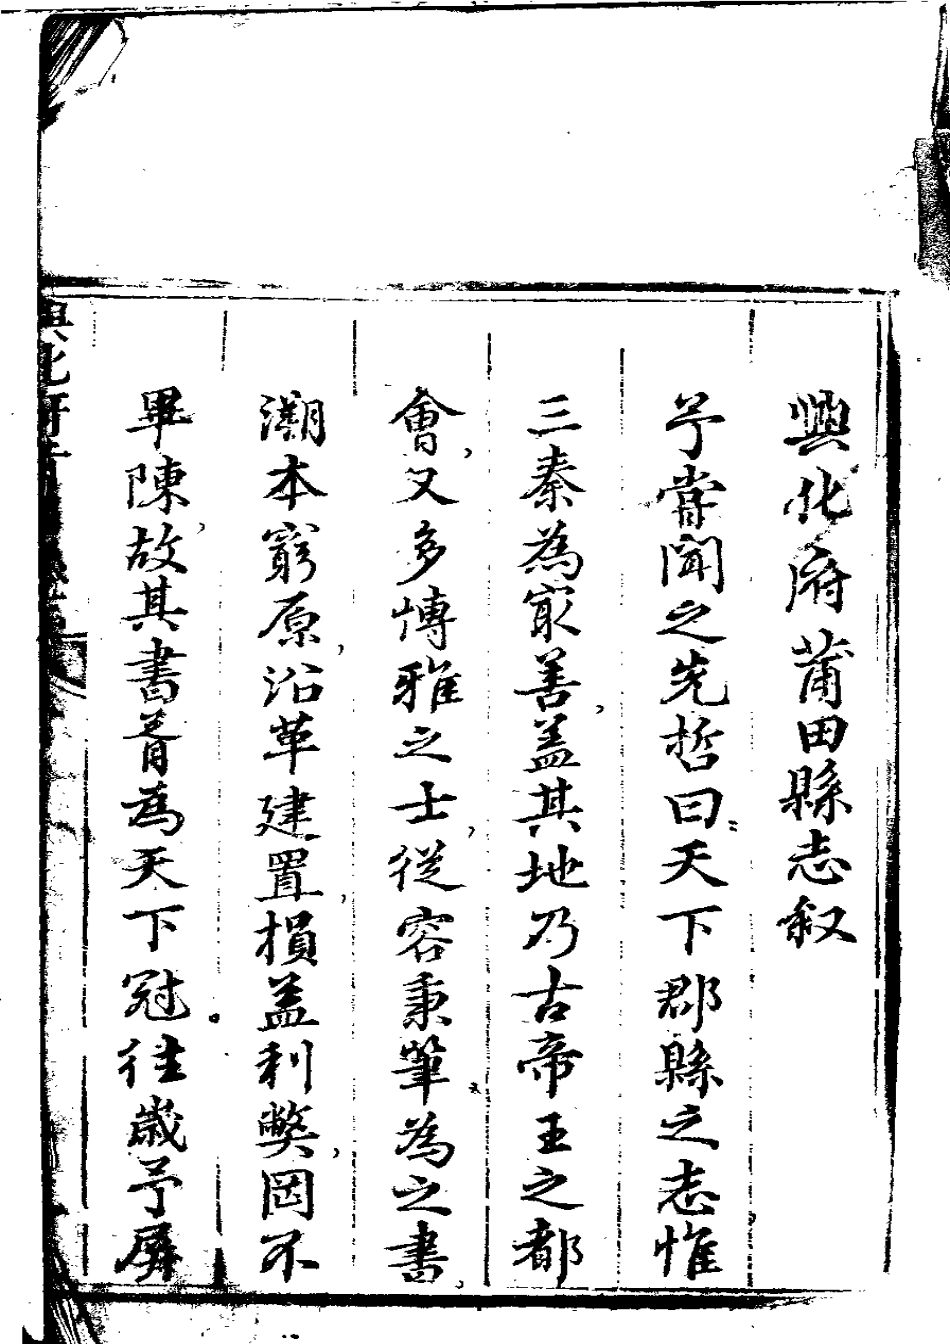 興化府莆田縣志叙
予嘗聞之先哲曰天下郡縣之志惟
三秦為㝡善盖其地乃古帝王之都
會又多愽雅之士從容秉筆為之書
溯本窮原沿革建置損益利弊罔不
畢陳故其書胥為天下冠往歲予屏
興化府